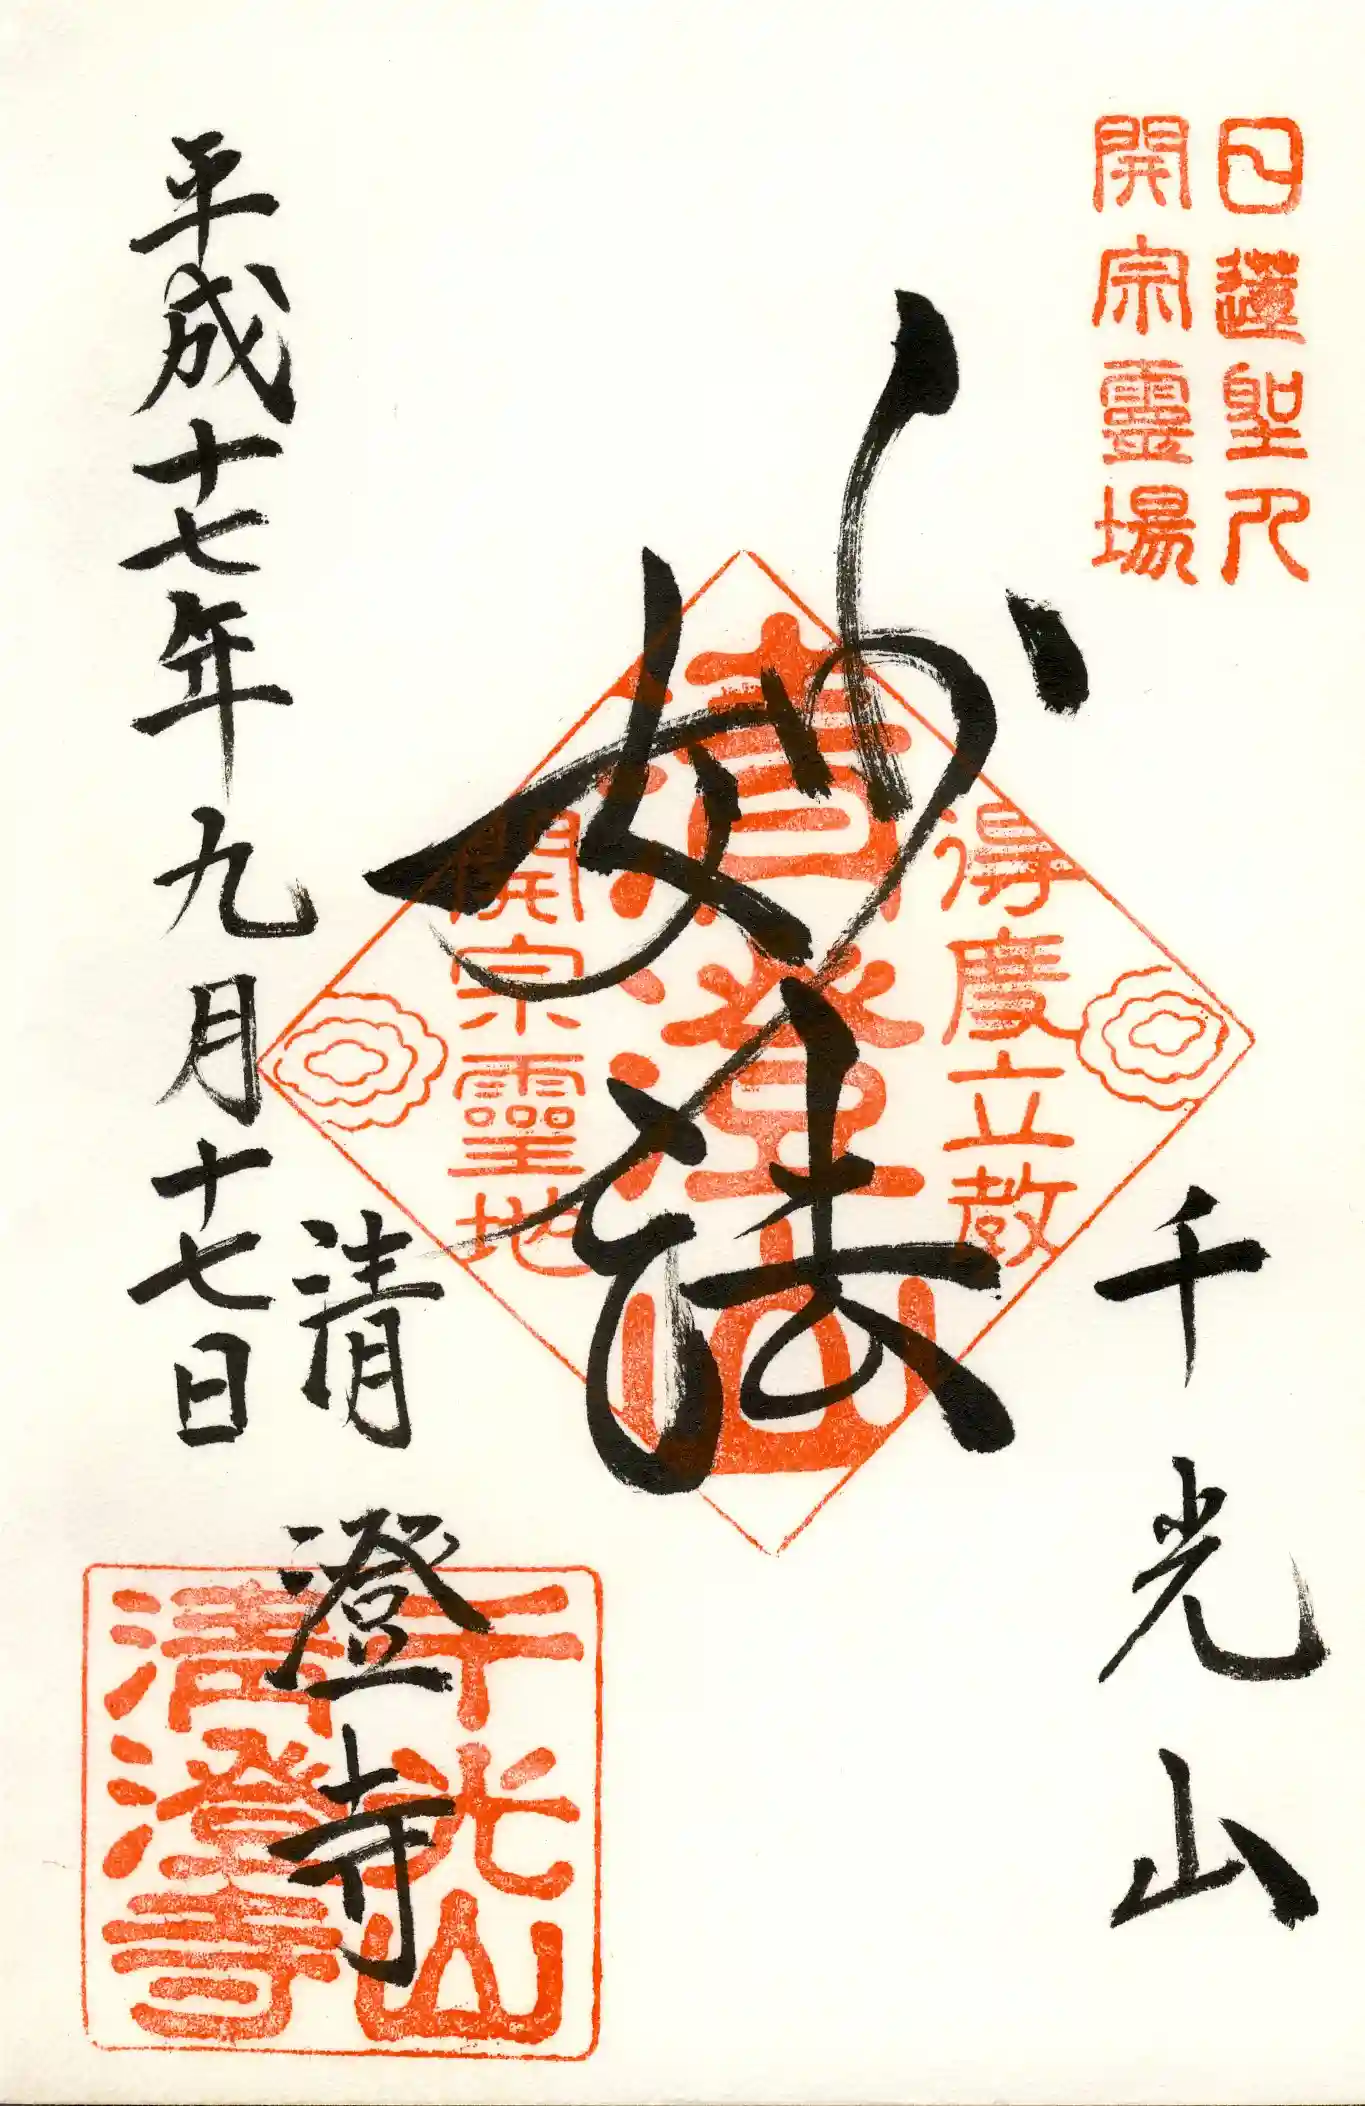 日蓮聖人
開宗靈場
千光山
得度立教
清澄山
開宗靈地
妙法
清澄寺
千光山
清澄寺
平成十七年九月十七日